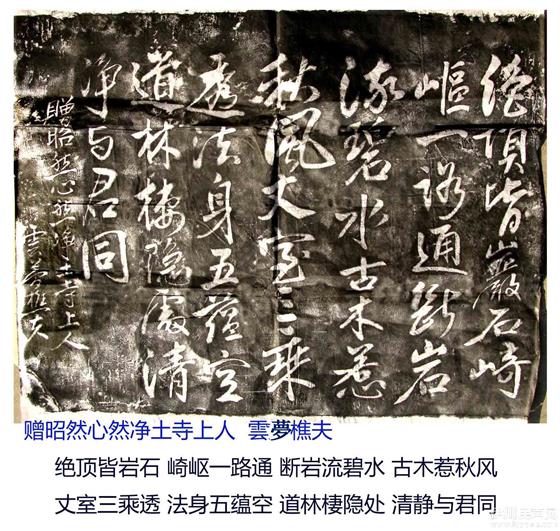 绝頂皆巖石崎
嶇一路通斷岩
流碧水古木惹
秋風丈室三乘
透法身五蕴空
道林棲隐處清
净与君同
贈昭然心然净土寺上人
雲夢樵夫
赠昭然心然净土寺上人 雲夢樵夫
绝顶皆岩石 崎岖一路通 断岩流碧水 古木惹秋风
丈室三乘透 法身五蕴空 道林棲隐处 清静与君同